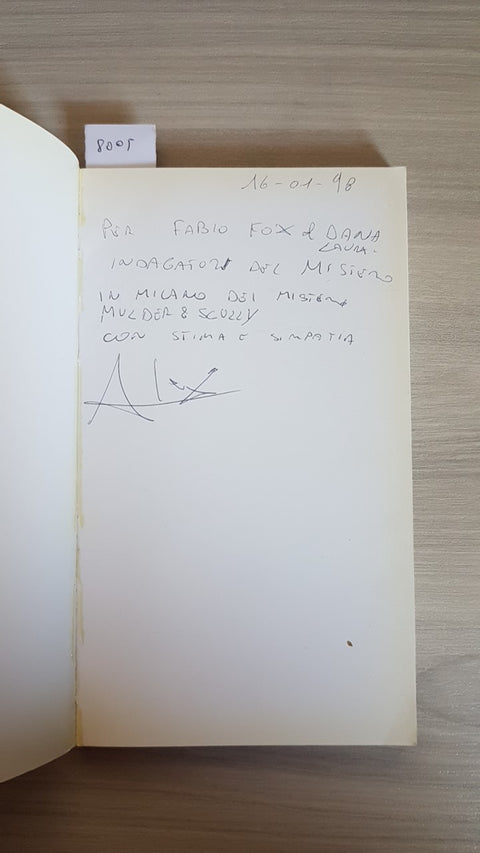 8005
16-01-98
PER FABIO FOX & DANA
LAURA.
INDAGATORI DEL MISTERO
IN MILANO DEI MISTERI
MULDER & SCULLY
CON STIMA E SIMPATIA
Alex